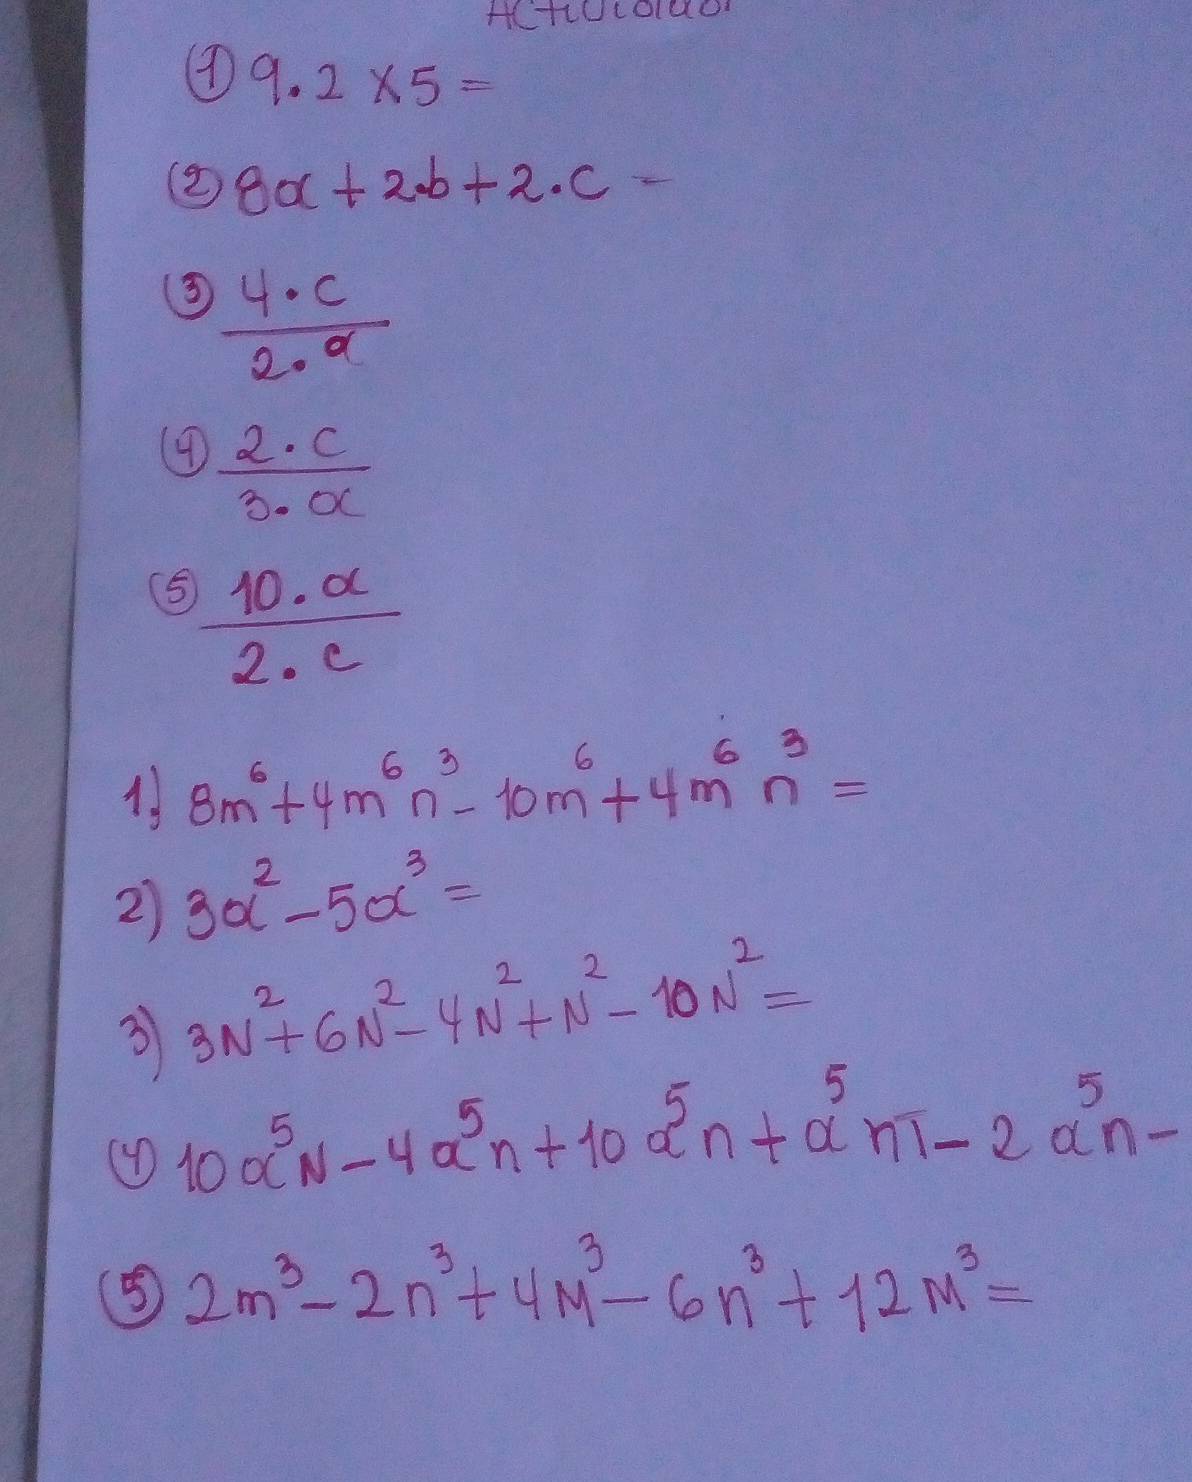 ① 9.2 × 5 =
② 8a + 2.b + 2.c -
③ 4.c
2.a
④ 2.c
3.a
⑤ 10.a
2.c
1) 8m⁶ + 4m⁶n³ - 10m⁶ + 4m⁶n³ =
2) 3a² - 5a³ =
3) 3N² + 6N² - 4N² + N² - 10N² =
④ 10a⁵N - 4a⁵n + 10a⁵n + a⁵n - 2a⁵n -
⑤ 2m³ - 2n³ + 4M³ - 6n³ + 12M³ =